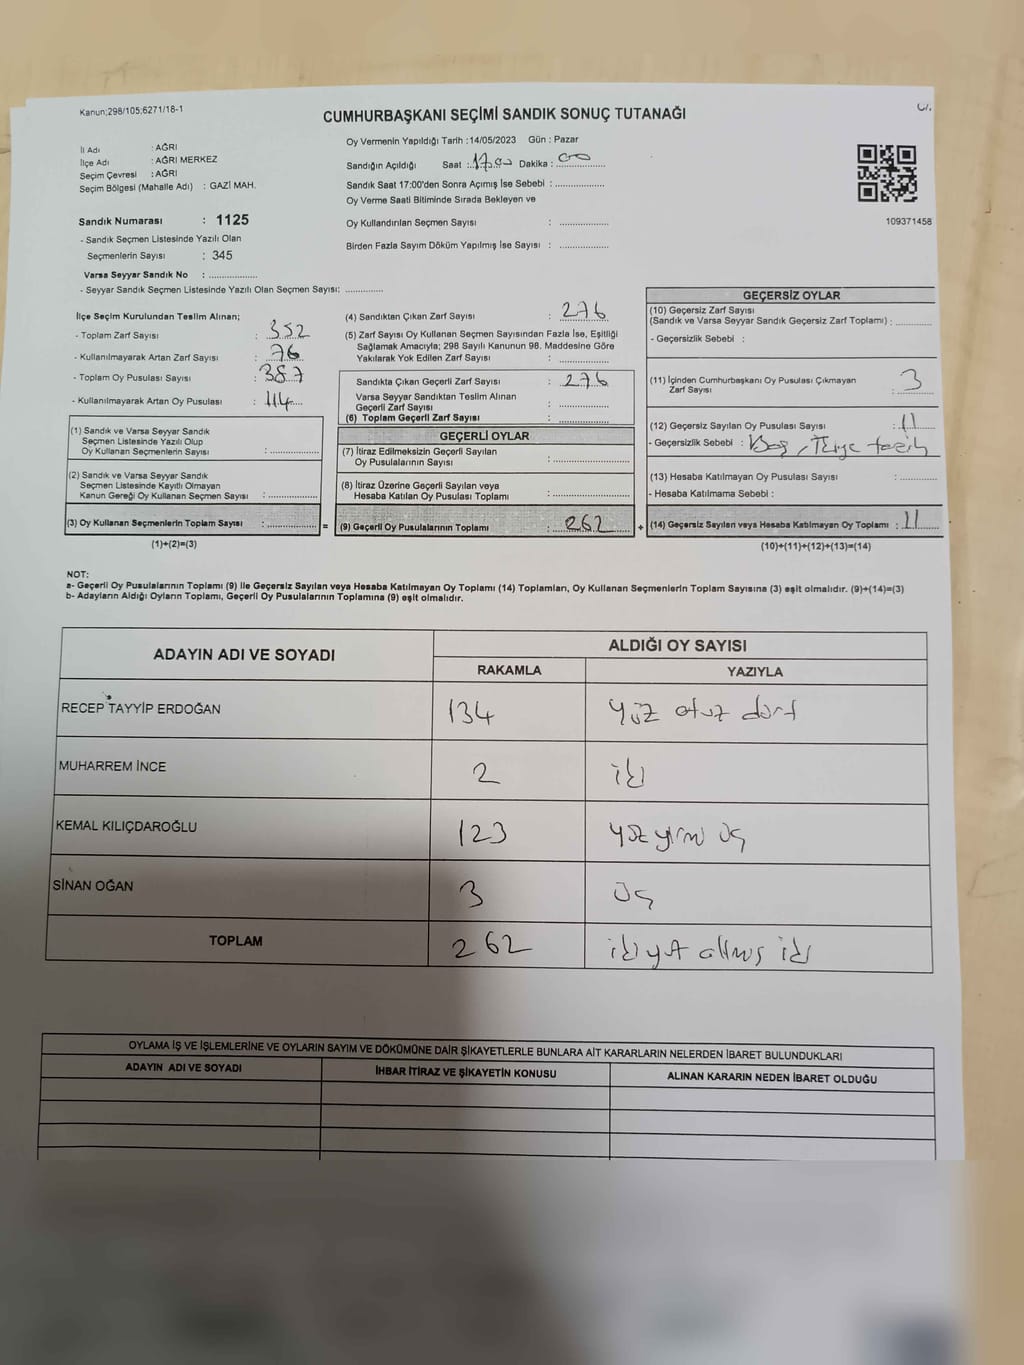 Kanun;298/105;6271/18-1
CUMHURBAŞKANI SEÇİMİ SANDIK SONUÇ TUTANAĞI
İl Adı : AĞRI
İlçe Adı : AĞRI MERKEZ
Seçim Çevresi : AĞRI
Seçim Bölgesi (Mahalle Adı) : GAZİ MAH.
Sandık Numarası : 1125
- Sandık Seçmen Listesinde Yazılı Olan
Seçmenlerin Sayısı : 345
Varsa Seyyar Sandık No : ..................
- Seyyar Sandık Seçmen Listesinde Yazılı Olan Seçmen Sayısı: ..............
Oy Vermenin Yapıldığı Tarih :14/05/2023 Gün : Pazar
Sandığın Açıldığı Saat : 17.00 Dakika : 00
Sandık Saat 17:00'den Sonra Açımış İse Sebebi : ..................
Oy Verme Saati Bitiminde Sırada Bekleyen ve
Oy Kullandırılan Seçmen Sayısı : ..................
Birden Fazla Sayım Döküm Yapılmış İse Sayısı : ..................
109371458
İlçe Seçim Kurulundan Teslim Alınan;
- Toplam Zarf Sayısı : 352
- Kullanılmayarak Artan Zarf Sayısı : 76
- Toplam Oy Pusulası Sayısı : 387
- Kullanılmayarak Artan Oy Pusulası : 114
(1) Sandık ve Varsa Seyyar Sandık
Seçmen Listesinde Yazılı Olup
Oy Kullanan Seçmenlerin Sayısı : ..................
(2) Sandık ve Varsa Seyyar Sandık
Seçmen Listesinde Kayıtlı Olmayan
Kanun Gereği Oy Kullanan Seçmen Sayısı : ..................
(3) Oy Kullanan Seçmenlerin Toplam Sayısı : ..................
(1)+(2)=(3)
=
(4) Sandıktan Çıkan Zarf Sayısı : 276
(5) Zarf Sayısı Oy Kullanan Seçmen Sayısından Fazla İse, Eşitliği
Sağlamak Amacıyla; 298 Sayılı Kanunun 98. Maddesine Göre
Yakılarak Yok Edilen Zarf Sayısı : ..................
Sandıkta Çıkan Geçerli Zarf Sayısı : 276
Varsa Seyyar Sandıktan Teslim Alınan
Geçerli Zarf Sayısı : ..................
(6) Toplam Geçerli Zarf Sayısı : ..................
GEÇERLİ OYLAR
(7) İtiraz Edilmeksizin Geçerli Sayılan
Oy Pusulalarının Sayısı : ..................
(8) İtiraz Üzerine Geçerli Sayılan veya
Hesaba Katılan Oy Pusulası Toplamı : ..................
(9) Geçerli Oy Pusulalarının Toplamı : 262
+
GEÇERSİZ OYLAR
(10) Geçersiz Zarf Sayısı
(Sandık ve Varsa Seyyar Sandık Geçersiz Zarf Toplamı) : ............
- Geçersizlik Sebebi :
(11) İçinden Cumhurbaşkanı Oy Pusulası Çıkmayan
Zarf Sayısı : 3
(12) Geçersiz Sayılan Oy Pusulası Sayısı : 11
- Geçersizlik Sebebi : Boş,
(13) Hesaba Katılmayan Oy Pusulası Sayısı : ............
- Hesaba Katılmama Sebebi :
(14) Geçersiz Sayılan veya Hesaba Katılmayan Oy Toplamı : 11
(10)+(11)+(12)+(13)=(14)
NOT:
a- Geçerli Oy Pusulalarının Toplamı (9) ile Geçersiz Sayılan veya Hesaba Katılmayan Oy Toplamı (14) Toplamları, Oy Kullanan Seçmenlerin Toplam Sayısına (3) eşit olmalıdır. (9)+(14)=(3)
b- Adayların Aldığı Oyların Toplamı, Geçerli Oy Pusulalarının Toplamına (9) eşit olmalıdır.
ADAYIN ADI VE SOYADI
ALDIĞI OY SAYISI
RAKAMLA YAZIYLA
RECEP TAYYİP ERDOĞAN 134 yüz otuz dört
MUHARREM İNCE 2 iki
KEMAL KILIÇDAROĞLU 123 yüz yirmi üç
SİNAN OĞAN 3 üç
TOPLAM 262 ikiyüz altmış iki
OYLAMA İŞ VE İŞLEMLERİNE VE OYLARIN SAYIM VE DÖKÜMÜNE DAİR ŞİKAYETLERLE BUNLARA AİT KARARLARIN NELERDEN İBARET BULUNDUKLARI
ADAYIN ADI VE SOYADI İHBAR İTİRAZ VE ŞİKAYETİN KONUSU ALINAN KARARIN NEDEN İBARET OLDUĞU